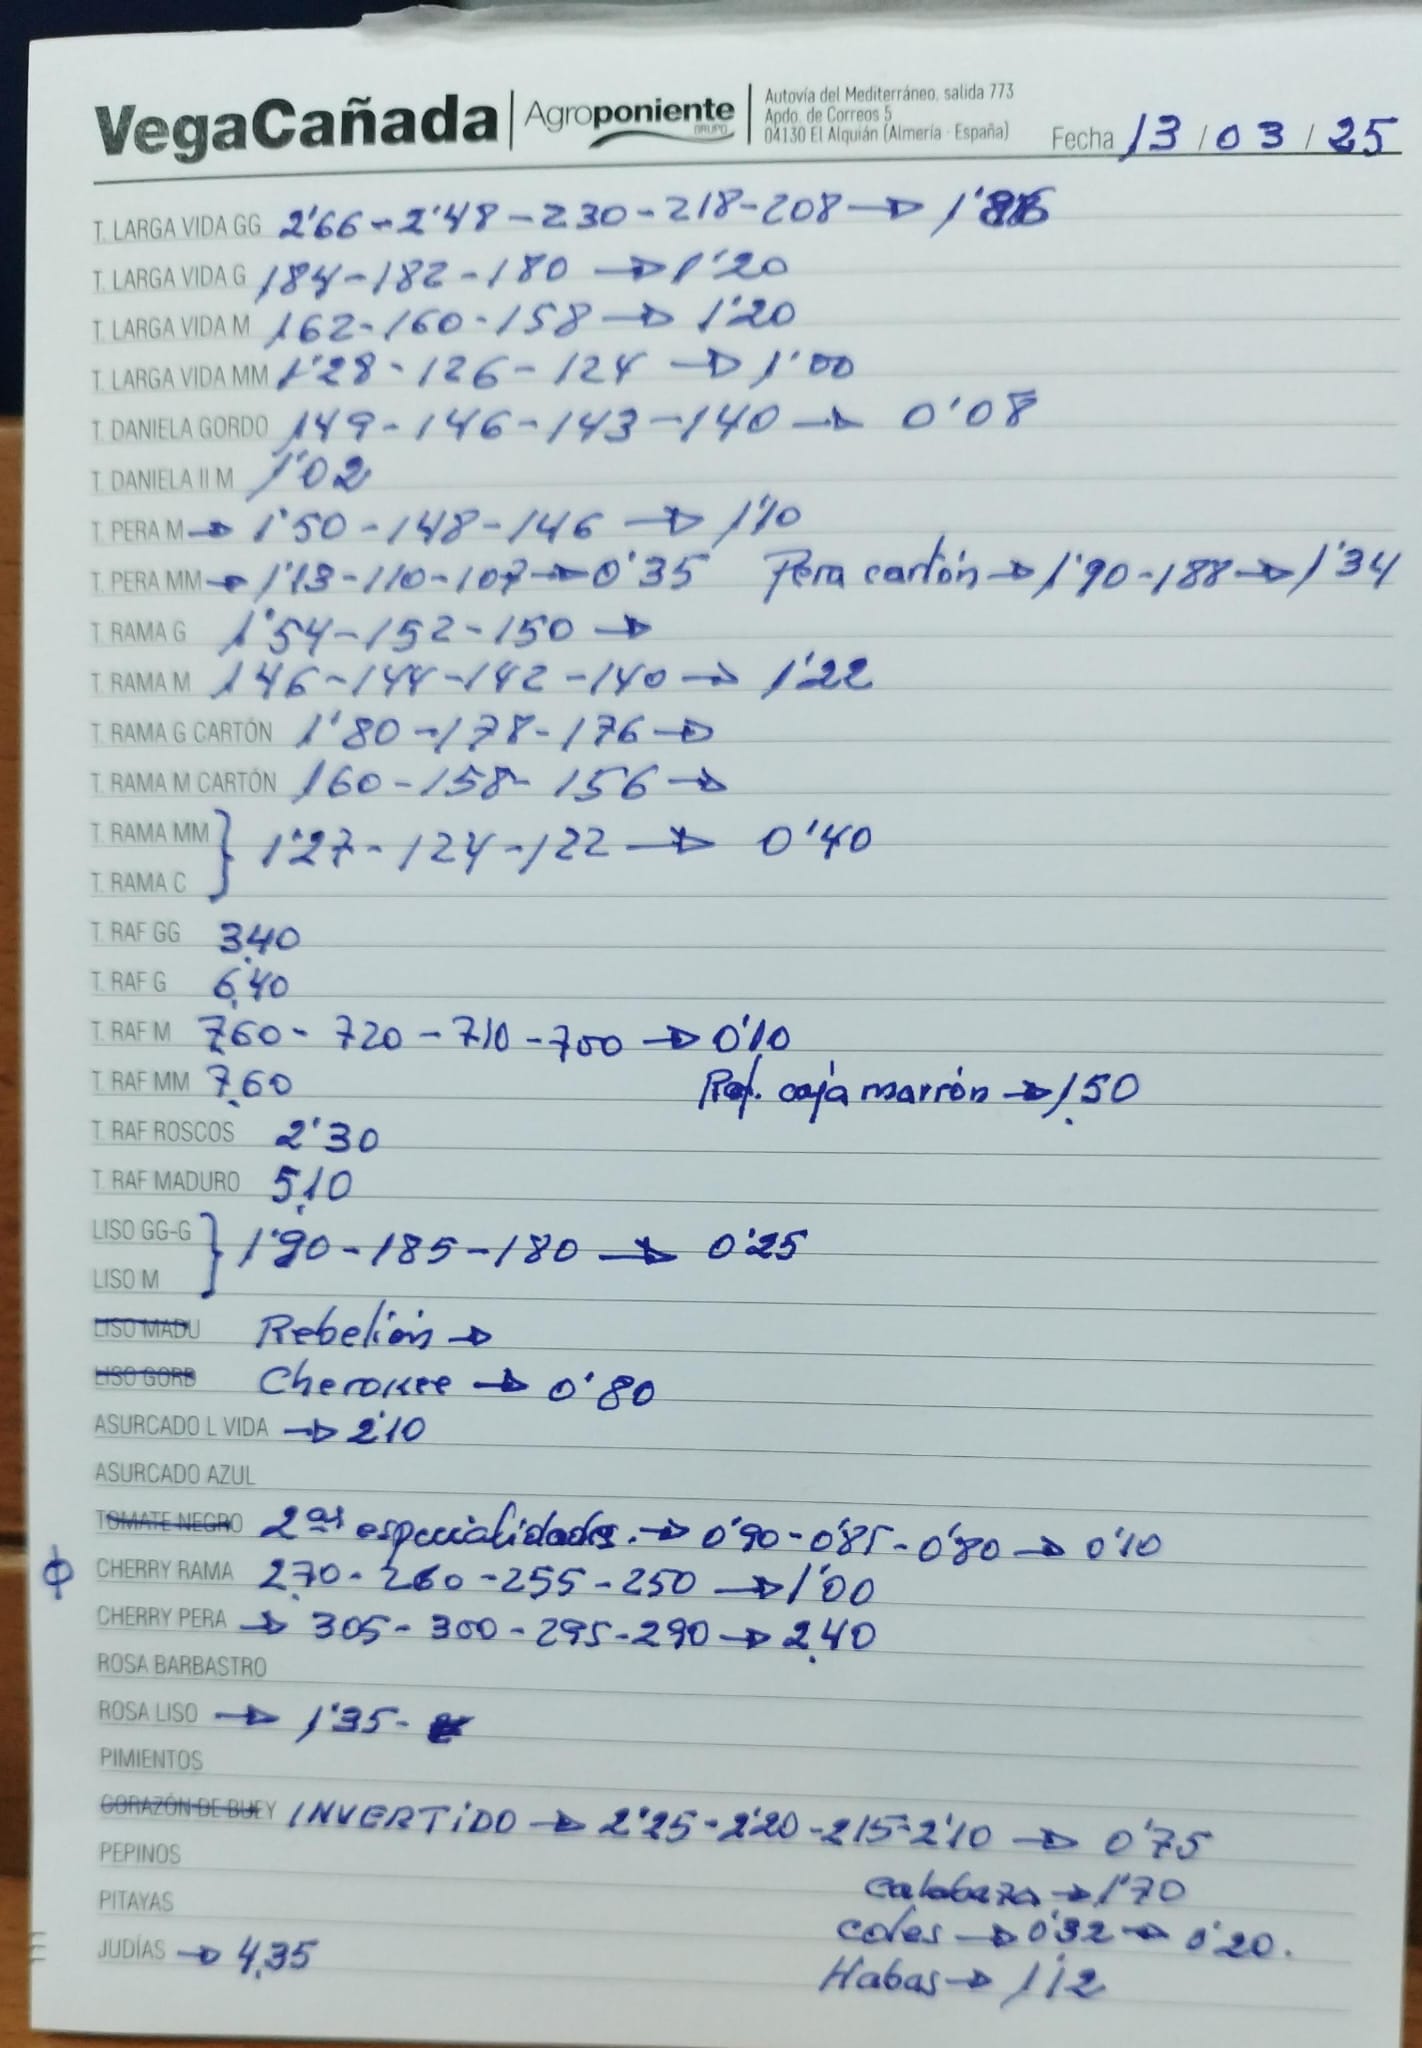 VegaCañada | Agroponiente GRUPO | Autovía del Mediterráneo, salida 773
Apdo. de Correos 5
04130 El Alquián (Almería - España)
Fecha 13 / 03 / 25
T. LARGA VIDA GG 2'66 - 2'48 - 230 - 218 - 208 → 1'86
T. LARGA VIDA G 184 - 182 - 180 → 1'20
T. LARGA VIDA M 162 - 160 - 158 → 1'20
T. LARGA VIDA MM 1'28 - 126 - 124 → 1'00
T. DANIELA GORDO 149 - 146 - 143 - 140 → 0'08
T. DANIELA II M 1'02
T. PERA M → 1'50 - 148 - 146 → 1'10
T. PERA MM → 1'13 - 110 - 107 → 0'35 Pera cartón → 1'90 - 188 → 1'34
T. RAMA G 1'54 - 152 - 150 →
T. RAMA M 146 - 144 - 142 - 140 → 1'22
T. RAMA G CARTÓN 1'80 - 178 - 176 →
T. RAMA M CARTÓN 160 - 158 - 156 →
T. RAMA MM } 1'27 - 124 - 122 → 0'40
T. RAMA C
T. RAF GG 3,40
T. RAF G 6,40
T. RAF M 7,60 - 720 - 710 - 700 → 0'10
T. RAF MM 7,60 Raf. caja marrón → 1,50
T. RAF ROSCOS 2'30
T. RAF MADURO 5,10
LISO GG-G } 1'90 - 185 - 180 → 0'25
LISO M
LISO MADU Rebelión →
LISO GORB Cherokee → 0'80
ASURCADO L VIDA → 2'10
ASURCADO AZUL
TOMATE NEGRO 2as especialidades. → 0'90 - 0'85 - 0'80 → 0'10
CHERRY RAMA 2,70 - 260 - 255 - 250 → 1'00
CHERRY PERA → 305 - 300 - 295 - 290 → 2,40
ROSA BARBASTRO
ROSA LISO → 1'35 -
PIMIENTOS
CORAZÓN DE BUEY INVERTIDO → 2'25 - 2'20 - 215 - 2'10 → 0'75
PEPINOS
calabaza → 1'70
PITAYAS
coles → 0'32 → 0'20.
JUDÍAS → 4,35
Habas → 1'12